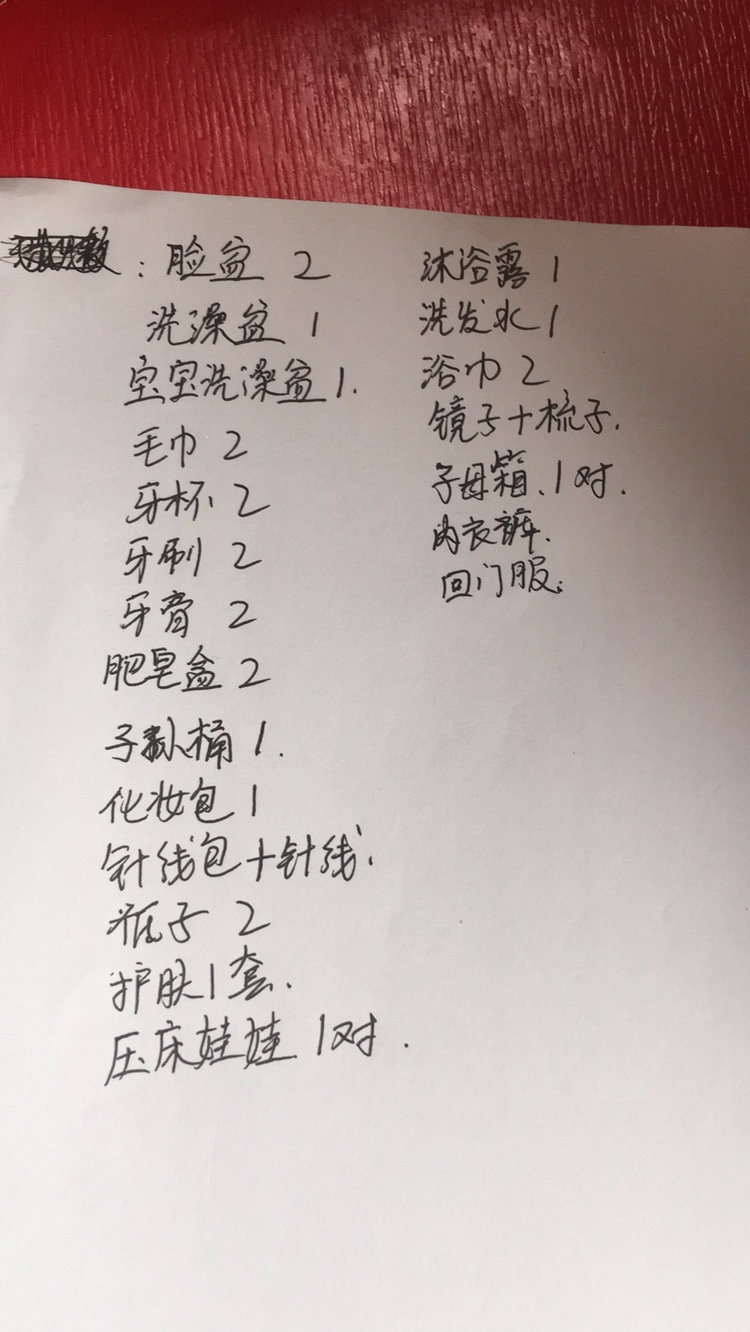 ：脸盆 2
洗澡盆 1
宝宝洗澡盆 1.
毛巾 2
牙杯 2
牙刷 2
牙膏 2
肥皂盒 2
子孙桶 1.
化妆包 1
针线包+针线.
瓶子 2
护肤1套.
压床娃娃 1对.
沐浴露 1
洗发水 1
浴巾 2
镜子+梳子.
子母箱、1对.
内衣裤.
回门服.